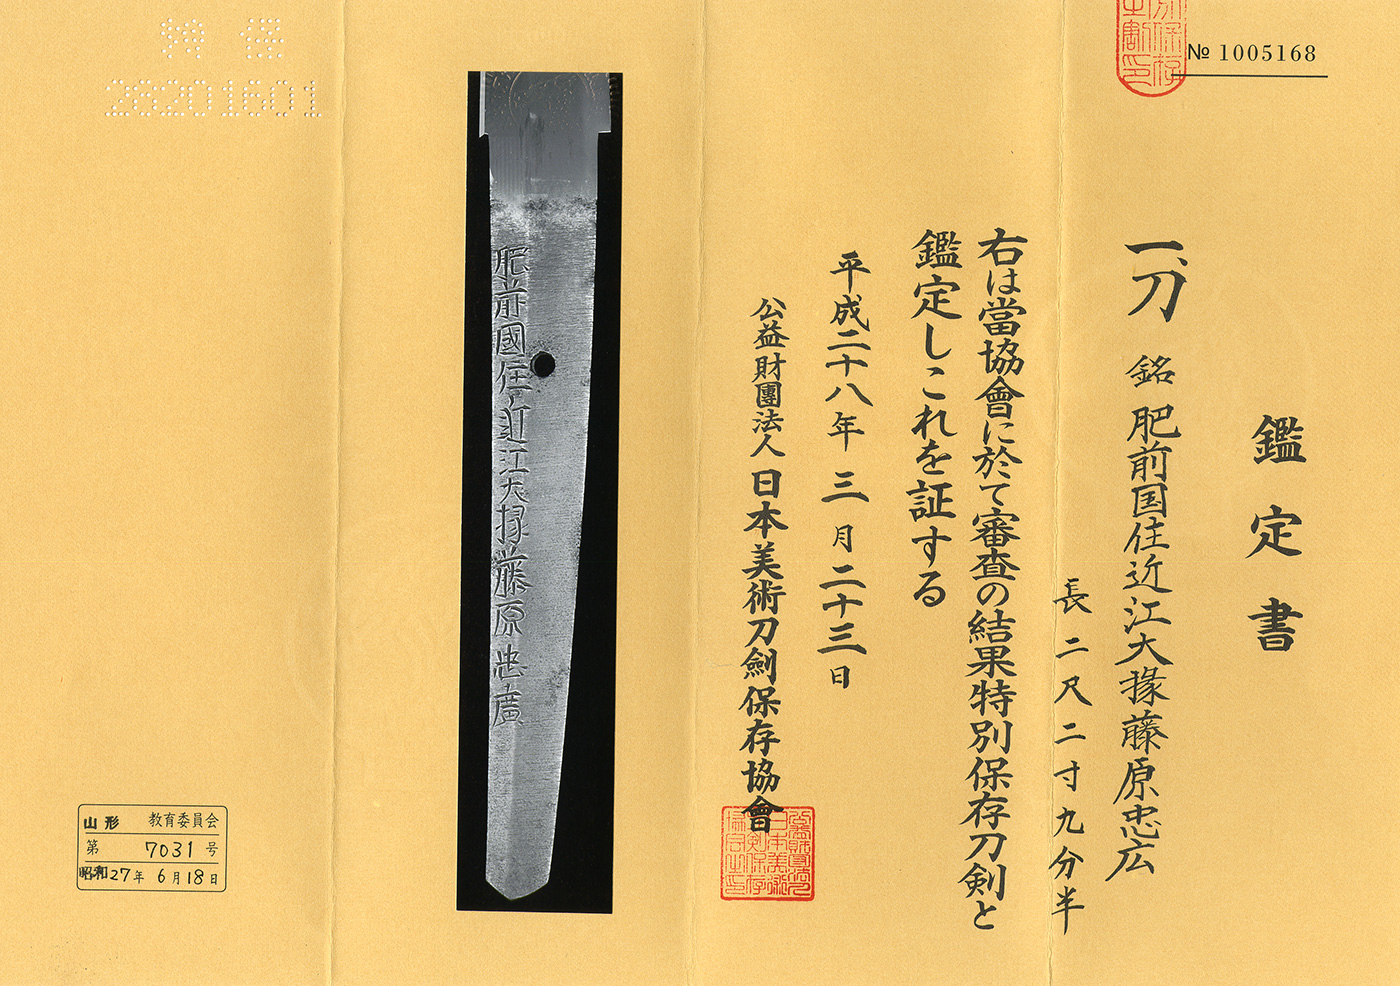 № 1005168
鑑定書
一、刀 銘 肥前国住近江大掾藤原忠広
長二尺二寸九分半
右は當協會に於て審査の結果特別保存刀剣と
鑑定しこれを証する
平成二十八年三月二十三日
公益財團法人 日本美術刀劍保存協會
肥前國住近江大掾藤原忠廣
28201601
山形 教育委員会
第 7031 号
昭和27年 6月18日